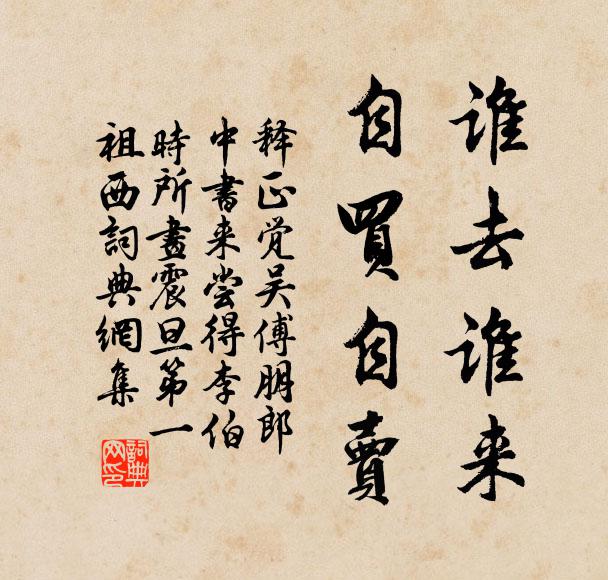 誰去誰来
自買自賣
释正觉吴傅朋郎
中書来尝得李伯
時所畫震旦第一
祖西詞典網集
詞典
网印